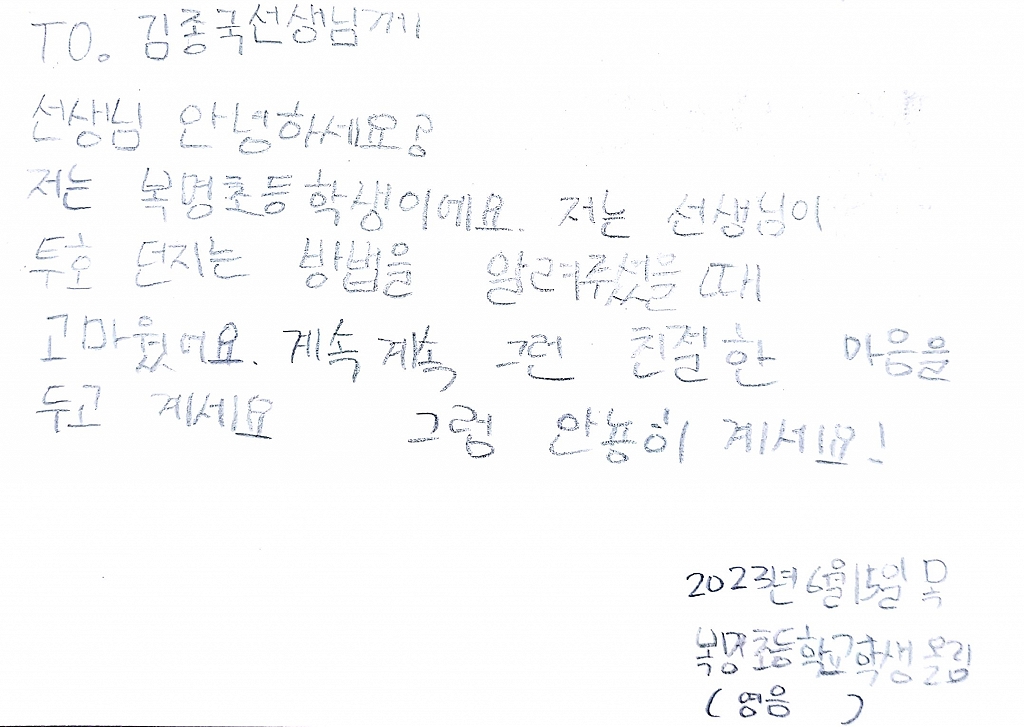 TO. 김종국선생님께
선생님 안녕하세요?
저는 복명초등학생이에요. 저는 선생님이
투호 던지는 방법을 알려주셨을 때
고마웠어요. 계속계속 그런 친절한 마음을
두고 계세요 그럼 안뇽히 계세요!
2023년 6월15일 목
복명초등학교학생올림
(영음 )